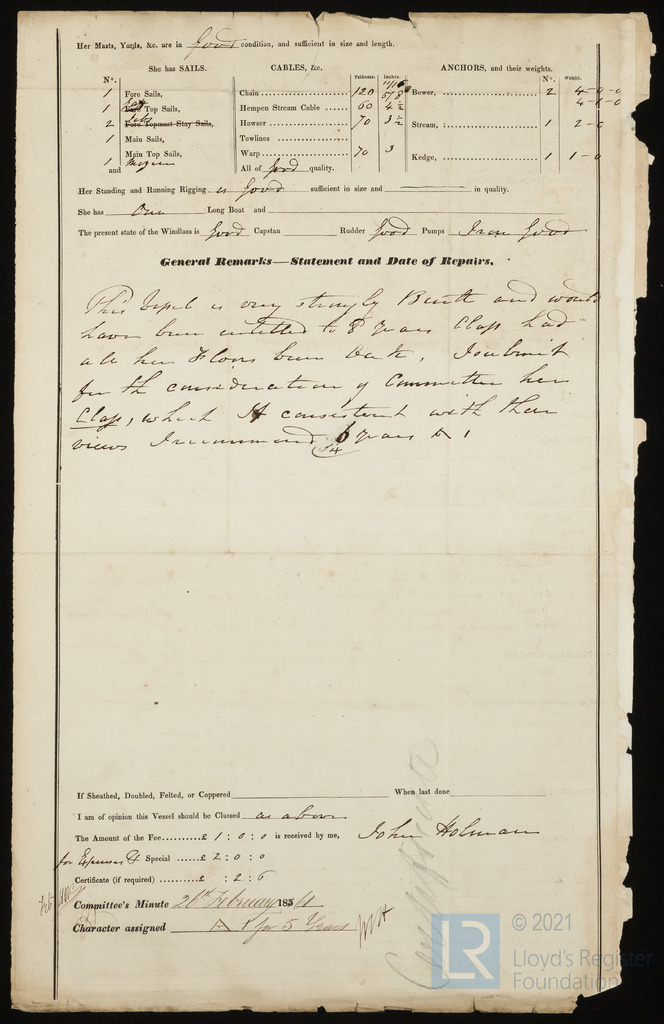 Her Masts, Yards, &c. are in Good condition, and sufficient in size and length.
She has SAILS. CABLES, &c. ANCHORS, and their weights.
N°. Fathoms. Inches. N°. Weight.
1 Fore Sails, Chain 120 11/16 5/8 Bower, 2 4-0-0
1 Fore Top Sails, Hempen Stream Cable 60 4½ 4-1-0
2 Jibs Fore Topmast Stay Sails, Hawser 70 3½ Stream, 1 2-0
1 Main Sails, Towlines
Main Top Sails, Warp 70 3 Kedge, 1 1-0
1 and Mizen All of Good quality.
Her Standing and Running Rigging is Good sufficient in size and in quality.
She has One Long Boat and
The present state of the Windlass is Good Capstan Rudder Good Pumps Iron Good
General Remarks—Statement and Date of Repairs.
This Vessel is very strongly Built and would
have been entitled to 8 Years Class had
all her Floors been Oak. I submit
for the consideration of Committee her
Class, which if consistent with their
views I recommend 6 Years A 1
If Sheathed, Doubled, Felted, or Coppered When last done
I am of opinion this Vessel should be Classed as above
The Amount of the Fee £ 1 : 0 : 0 is received by me, John Holman
for Expenses & Special £ 2 : 0 : 0
Certificate (if required) £ : 2 : 6
Committee's Minute 26th February 183
Character assigned A 1 for 5 Years
LR © 2021
Lloyd's Register
Foundation